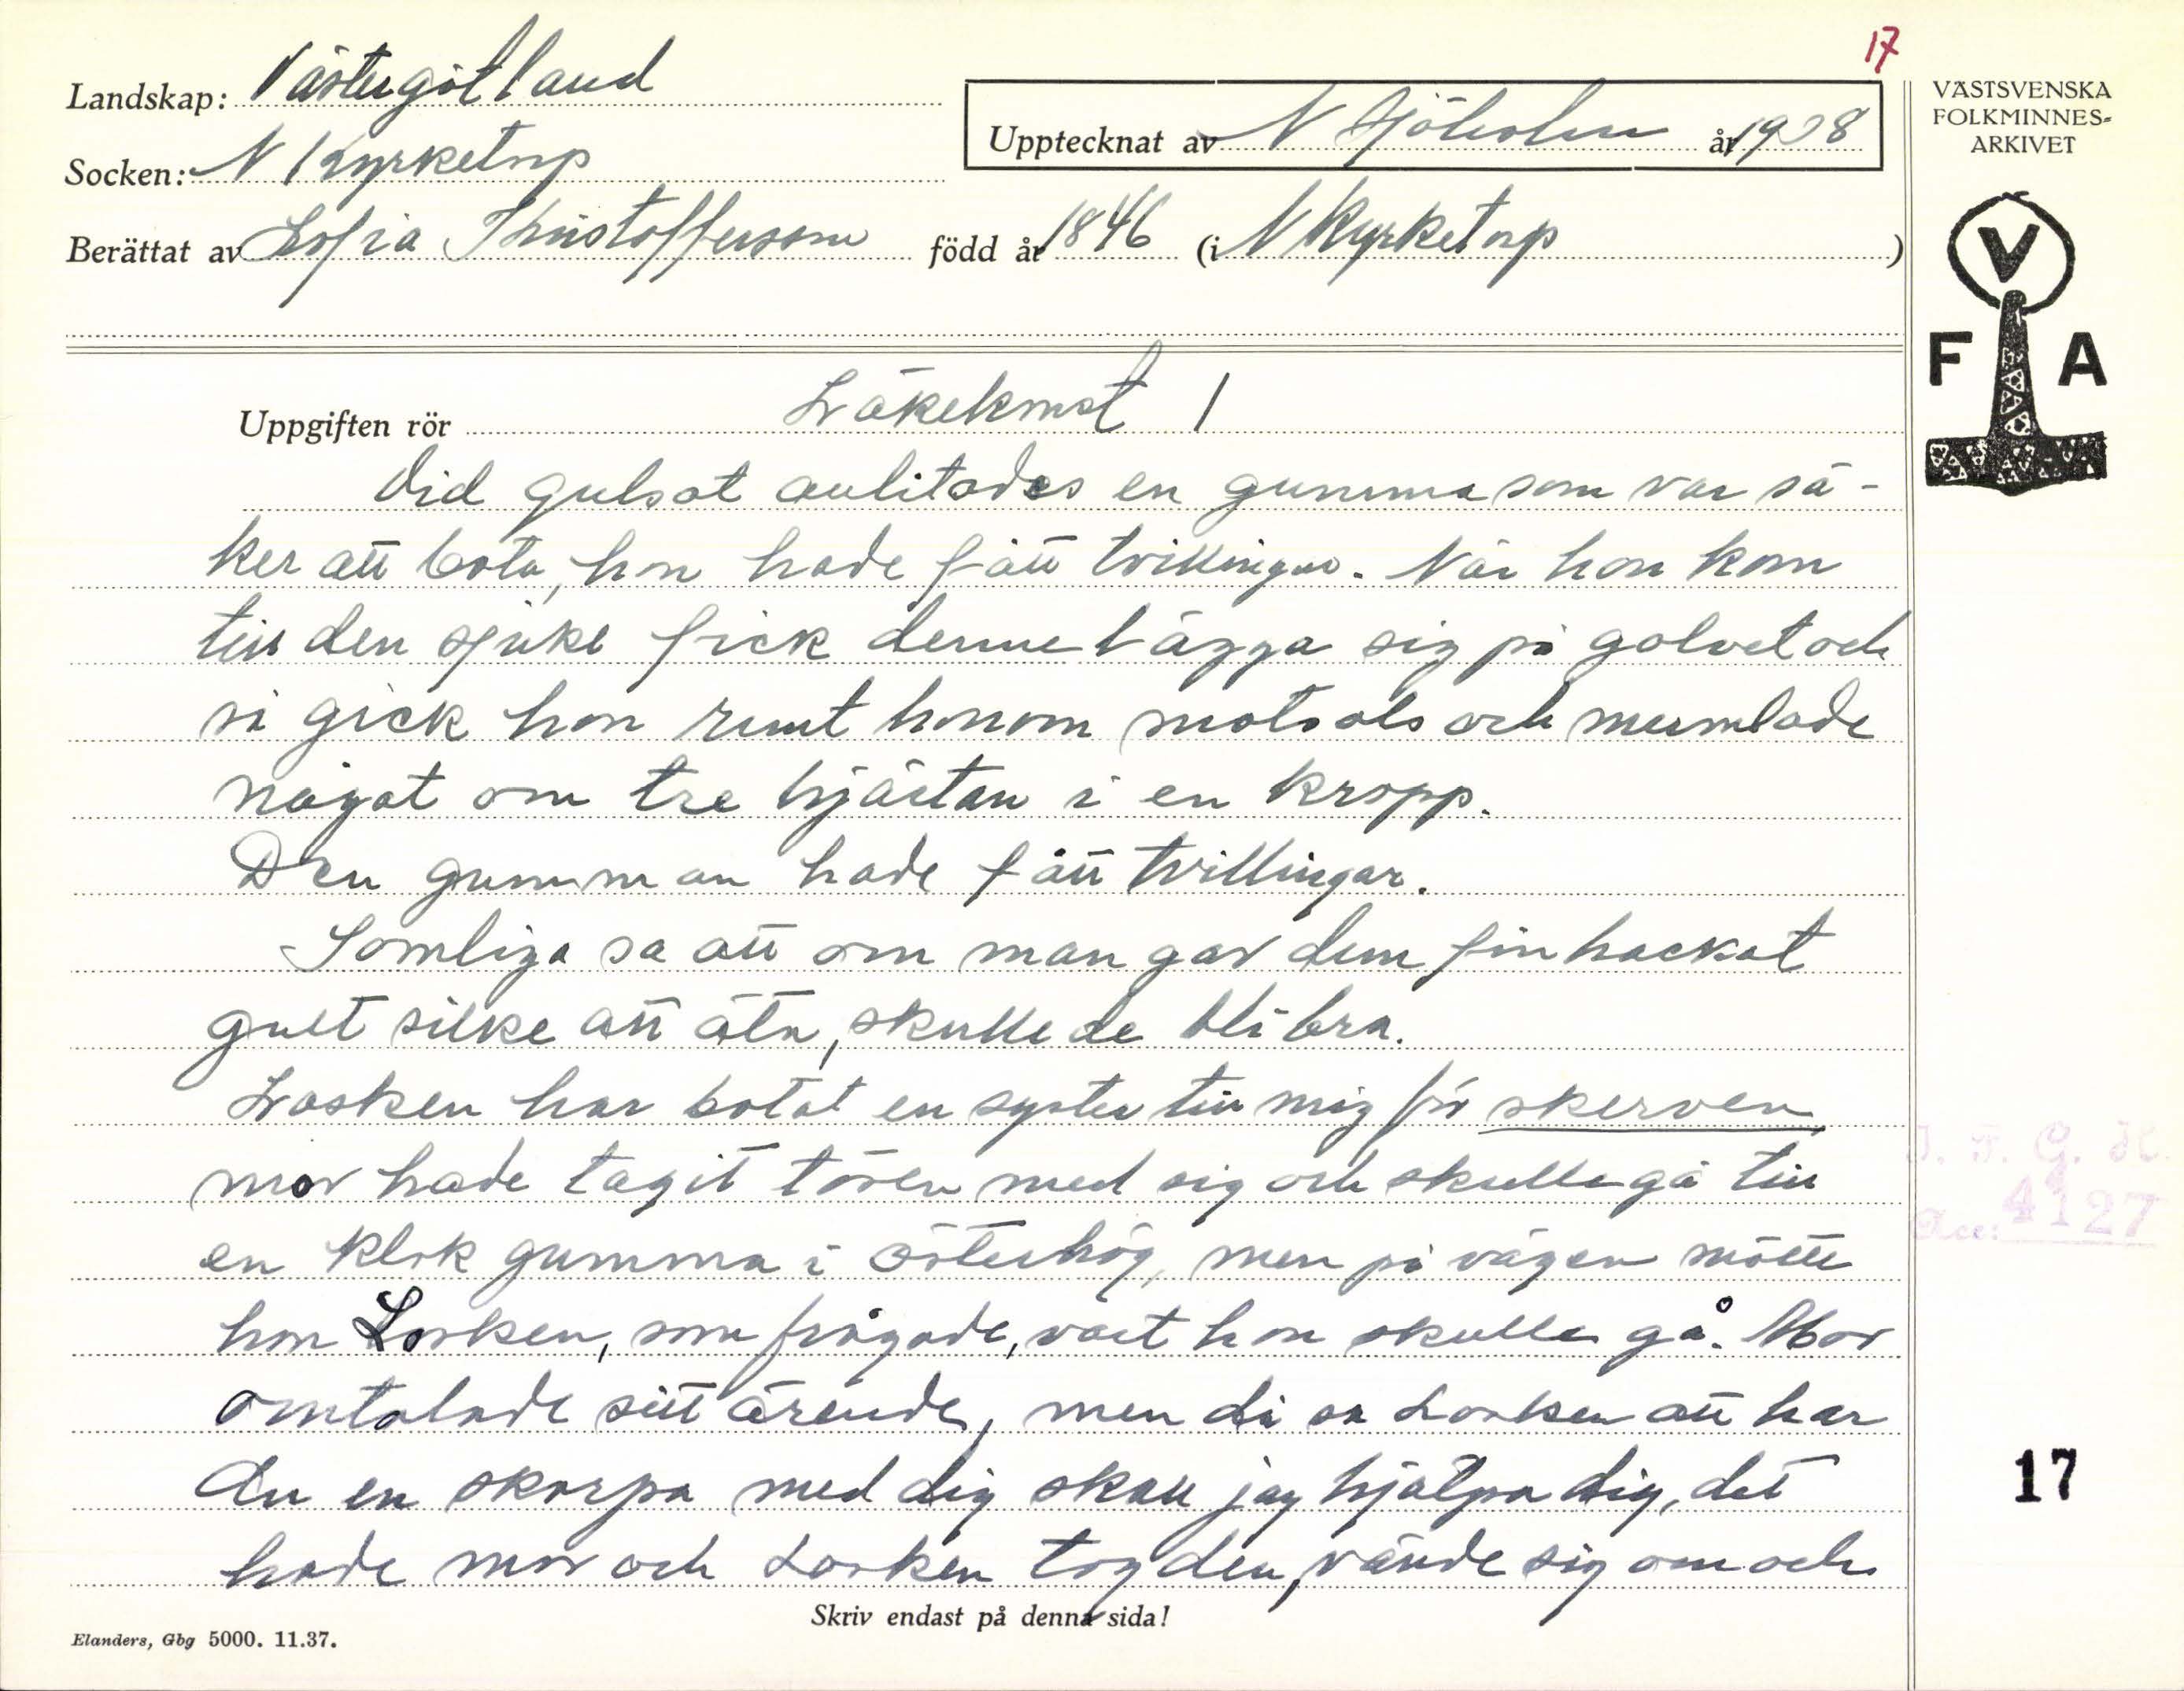 17
Landskap: Västergötland
Socken: N Kyrketorp
Upptecknat av N Sjöholm år 1928
Berättat av Sofia Khristoffersson född år 1846 (i N Kyrketorp)
VÄSTSVENSKA
FOLKMINNES-
ARKIVET
V
F A
Uppgiften rör Läkekonst 1
Vid gulsot anlitades en gumma som var sä-
ker att bota, hon hade fått tvillingar. När hon kom
till den sjuke fick denne lägga sig på golvet och
så gick hon runt honom motsols och mumlade
något om tre hjärtan i en kropp.
Den gumman hade fått tvillingar.
Somliga sa att om man gav dem finhackat
gult silke att äta, skulle de bli bra.
Lasken har botat en syster till mig för skerven
mor hade tagit tösen med sig och skulle gå till
en klok gumma i Österhög, men på vägen mötte
hon Lasken, som frågade, vart hon skulle gå. Mor
omtalade sitt ärende, men då sa Lasken att har
du en skorpa med dig skall jag hjälpa dig, det
hade mor och Lasken tog den, vände sig om och
J. F. G. H.
Acc: 4127
17
Skriv endast på denna sida!
Elanders, Gbg 5000. 11.37.